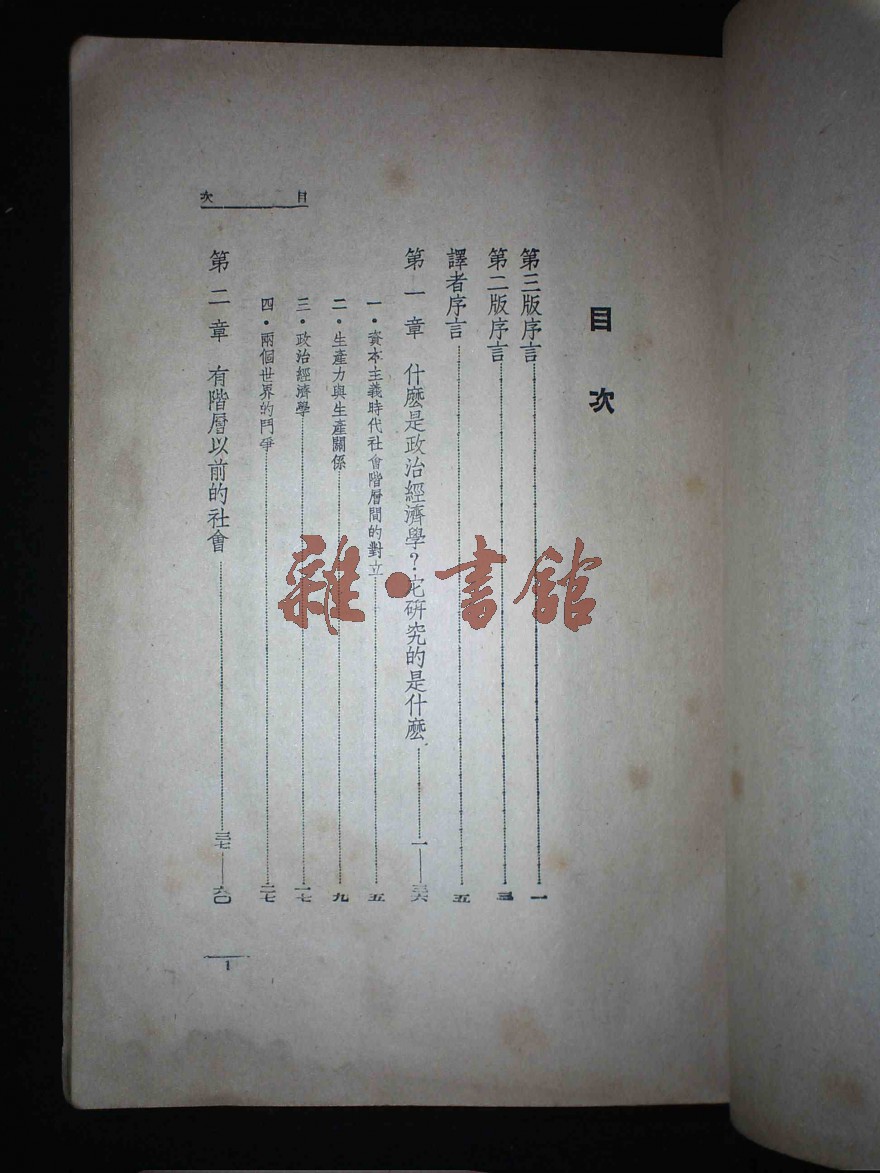 目次
目次
第三版序言 一
第二版序言 三
譯者序言 五
第一章 什麽是政治經濟學?它研究的是什麽 一——三六
一·資本主義時代社會階層間的對立 五
二·生產力與生產關係 九
三·政治經濟學 一七
四·兩個世界的鬥爭 二七
第二章 有階層以前的社會 三七——六〇
1
雜·書館